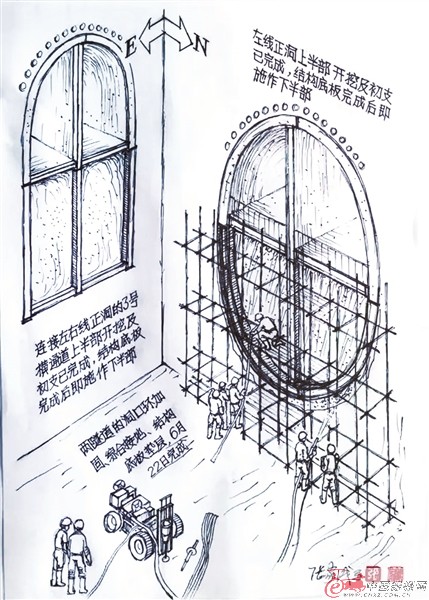 E
N
左线正洞上半部开挖及初支
已完成，结构底板完成后即
施作下半部
连接左右线正洞的3号
横通道上半部开挖及
初支已完成，结构底板
完成后即施作下半部
两隧道的洞口环加
固、综合接地、结构
底板垫层6月
22日完成
www.cnxz.com.cn